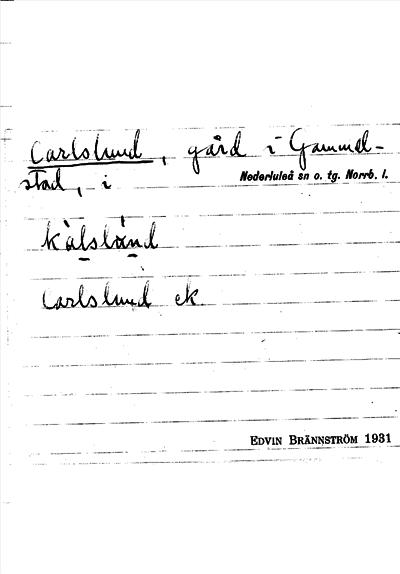 Carlslund, gård i Gammel-
stad, i Nederluleå sn o. tg. Norrb. l.
Carlslund ek
EDVIN BRÄNNSTRÖM 1931